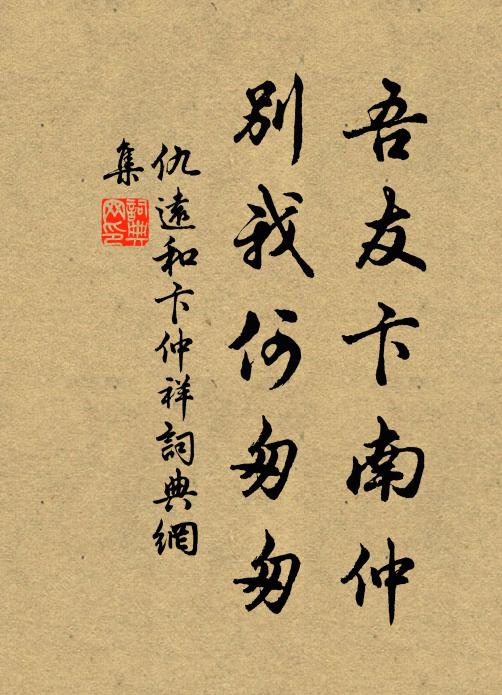 吾友卞南仲
別我何匆匆
仇遠和卞仲祥詞典網
集
詞典
网印